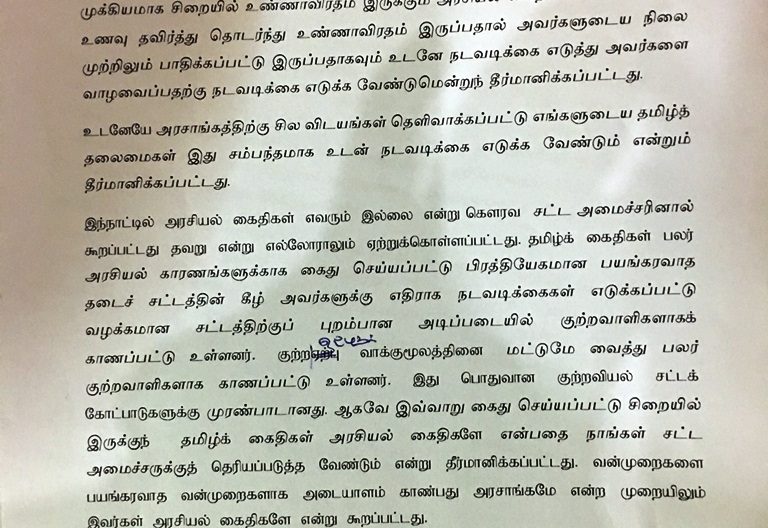 முக்கியமாக சிறையில் உண்ணாவிரதம் இருக்கும்
உணவு தவிர்த்து தொடர்ந்து உண்ணாவிரதம் இருப்பதால் அவர்களுடைய நிலை
முற்றிலும் பாதிக்கப்பட்டு இருப்பதாகவும் உடனே நடவடிக்கை எடுத்து அவர்களை
வாழவைப்பதற்கு நடவடிக்கை எடுக்க வேண்டுமென்றுந் தீர்மானிக்கப்பட்டது.
உடனேயே அரசாங்கத்திற்கு சில விடயங்கள் தெளிவாக்கப்பட்டு எங்களுடைய தமிழ்த்
தலைமைகள் இது சம்பந்தமாக உடன் நடவடிக்கை எடுக்க வேண்டும் என்றும்
தீர்மானிக்கப்பட்டது.
இந்நாட்டில் அரசியல் கைதிகள் எவரும் இல்லை என்று கௌரவ சட்ட அமைச்சரினால்
கூறப்பட்டது தவறு என்று எல்லோராலும் ஏற்றுக்கொள்ளப்பட்டது. தமிழ்க் கைதிகள் பலர்
அரசியல் காரணங்களுக்காக கைது செய்யப்பட்டு பிரத்தியேகமான பயங்கரவாத
தடைச் சட்டத்தின் கீழ் அவர்களுக்கு எதிராக நடவடிக்கைகள் எடுக்கப்பட்டு
வழக்கமான சட்டத்திற்குப் புறம்பான அடிப்படையில் குற்றவாளிகளாகக்
காணப்பட்டு உள்ளனர். குற்ற வாக்குமூலத்தினை மட்டுமே வைத்து பலர்
குற்றவாளிகளாக காணப்பட்டு உள்ளனர். இது பொதுவான குற்றவியல் சட்டக்
கோட்பாடுகளுக்கு முரண்பாடானது. ஆகவே இவ்வாறு கைது செய்யப்பட்டு சிறையில்
இருக்குந் தமிழ்க் கைதிகள் அரசியல் கைதிகளே என்பதை நாங்கள் சட்ட
அமைச்சருக்குத் தெரியப்படுத்த வேண்டும் என்று தீர்மானிக்கப்பட்டது. வன்முறைகளை
பயங்கரவாத வன்முறைகளாக அடையாளம் காண்பது அரசாங்கமே என்ற முறையிலும்
இவர்கள் அரசியல் கைதிகளே என்று கூறப்பட்டது.